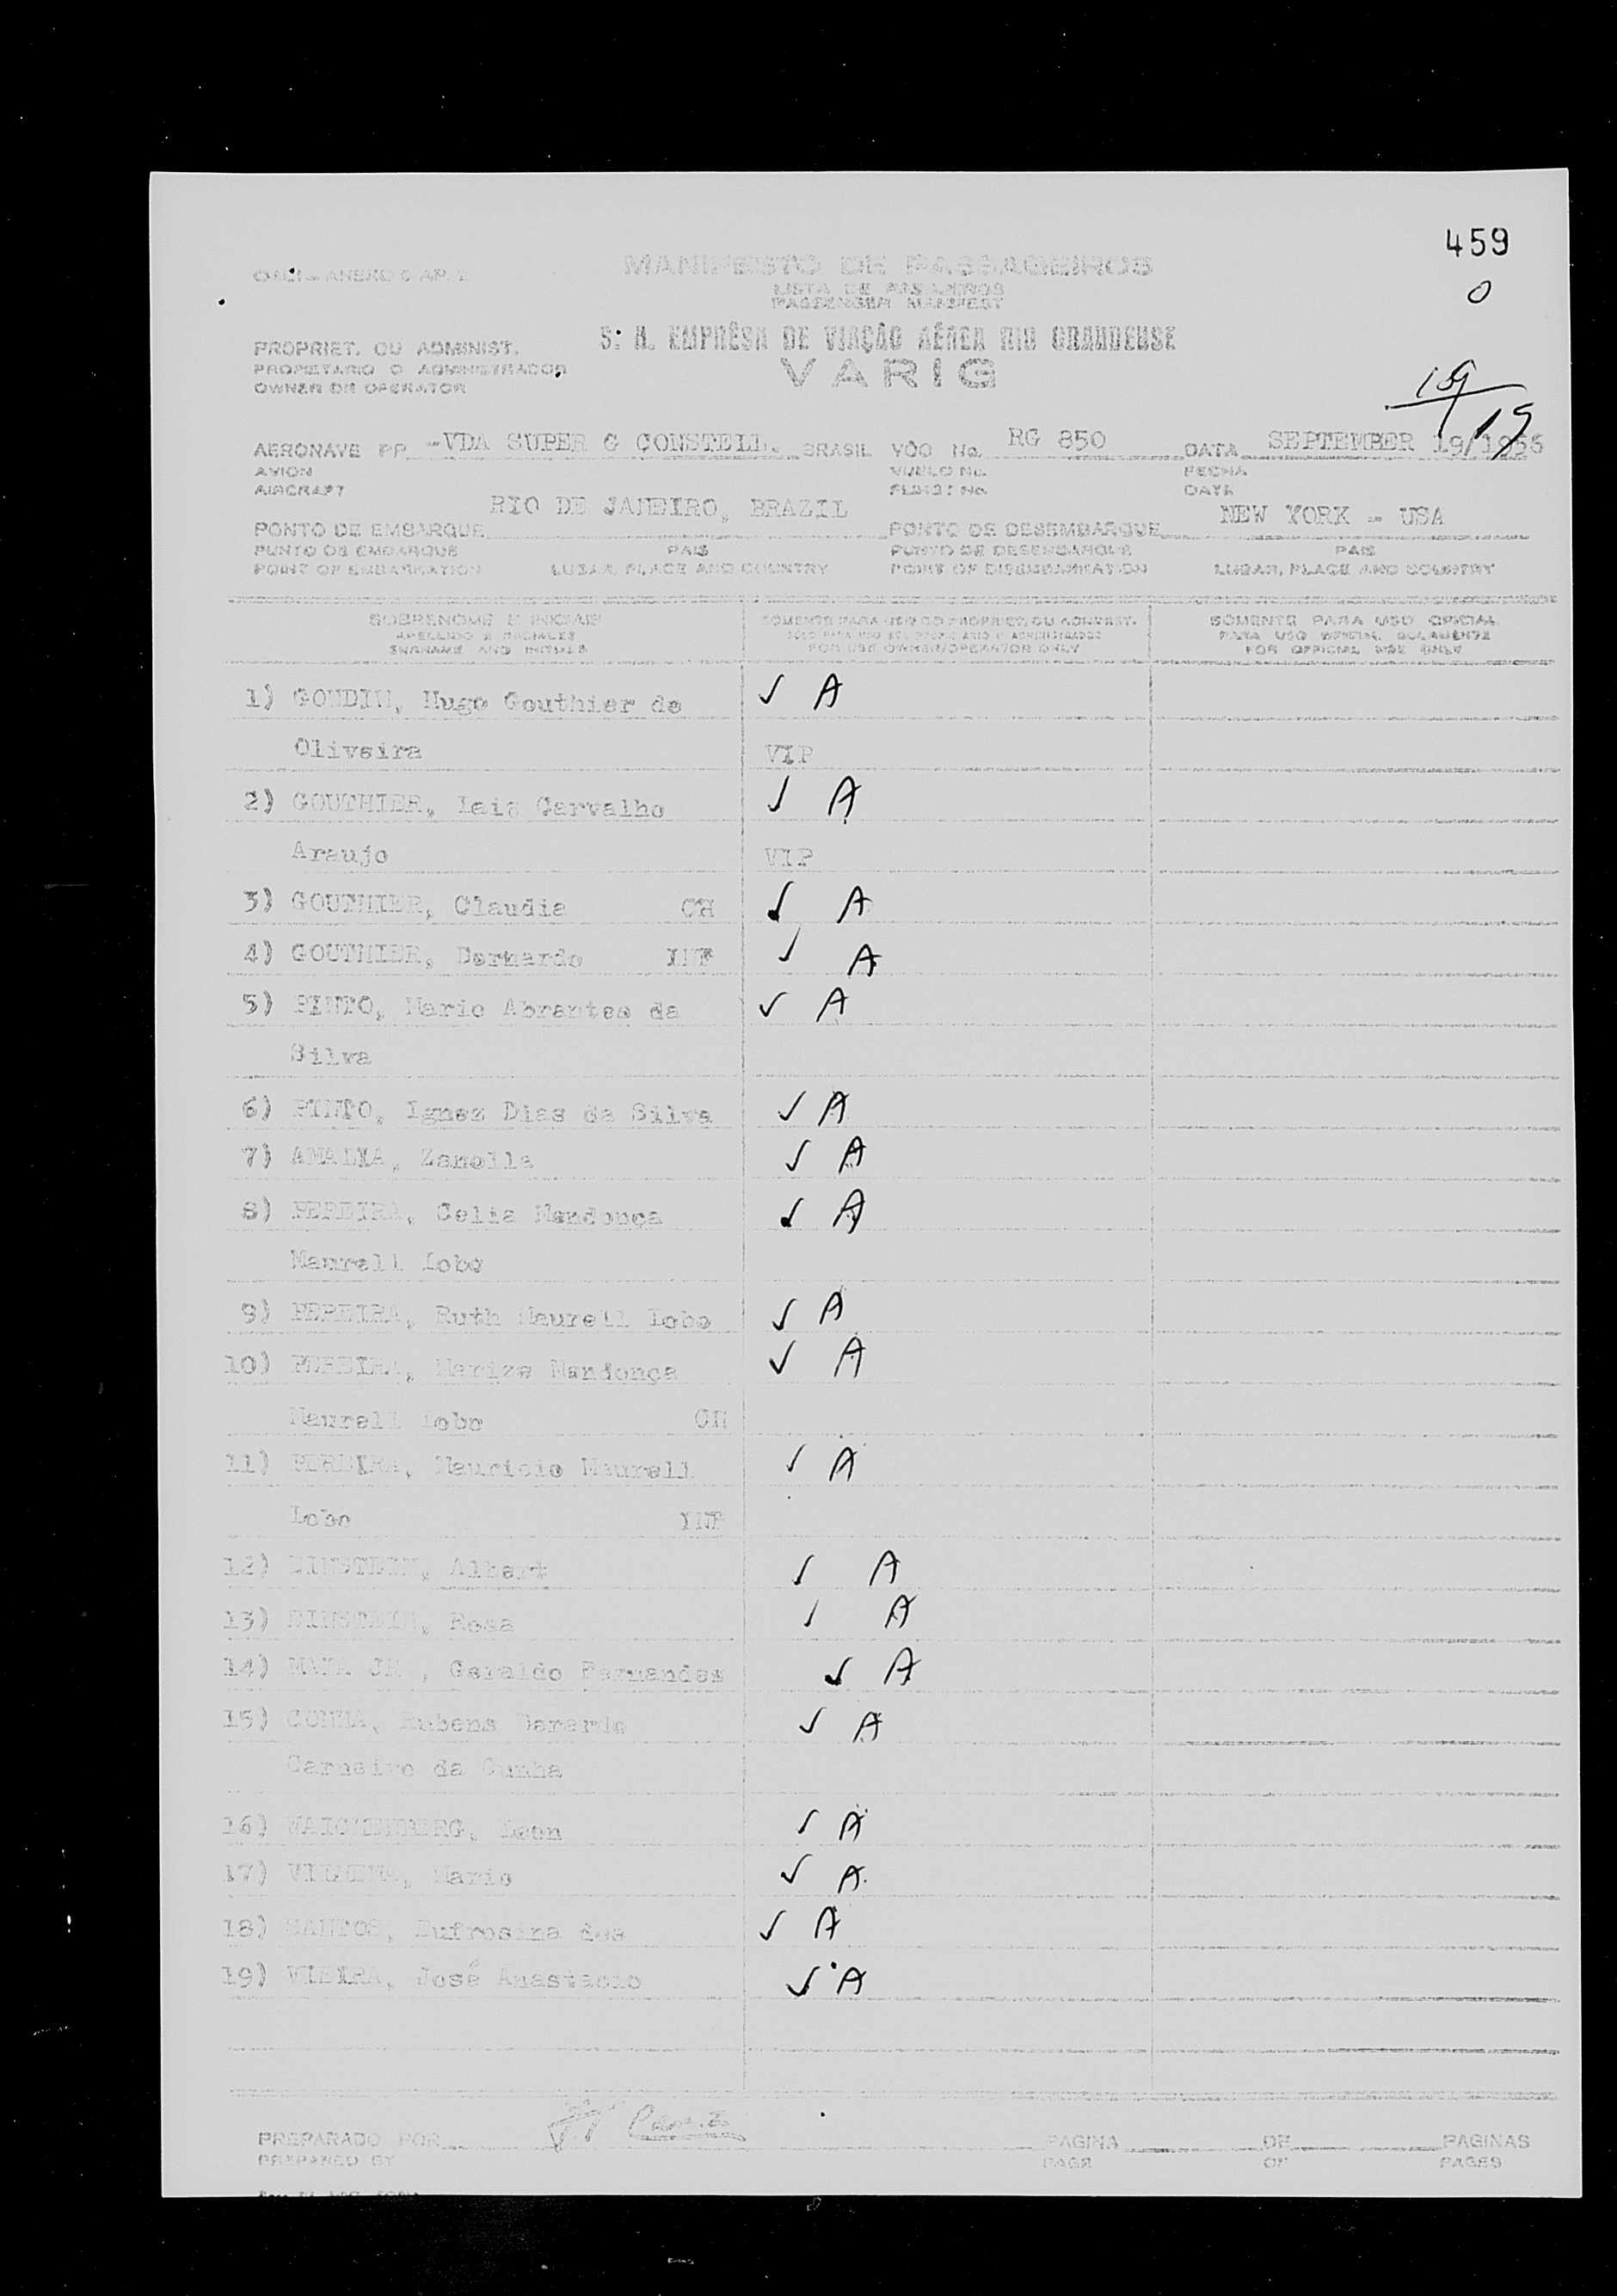 459
0
OACI - ANEXO 9 AP. 2
MANIFESTO DE PASSAGEIROS
LISTA DE PASAJEROS
PASSENGER MANIFEST
PROPRIET. OU ADMINIST.
PROPIETARIO O ADMINISTRADOR
OWNER OR OPERATOR
S. A. EMPRÊSA DE VIAÇÃO AÉREA RIO GRANDENSE
VARIG
19/19
AERONAVE PP -VDA SUPER G CONSTELL. BRASIL VÔO No. RG 850 DATA SEPTEMBER 19/1956
AVION VUELO No. FECHA
AIRCRAFT FLIGHT No. DATE
RIO DE JANEIRO, BRAZIL NEW YORK - USA
PONTO DE EMBARQUE PONTO DE DESEMBARQUE
PUNTO DE EMBARQUE PAIS PUNTO DE DESEMBARQUE PAIS
POINT OF EMBARKATION LUGAR, PLACE AND COUNTRY POINT OF DISEMBARKATION LUGAR, PLACE AND COUNTRY
SOBRENOME E INICIAIS SOMENTE PARA USO DO PROPRIET. OU ADMINIST. SOMENTE PARA USO OFICIAL
APELLIDO E INICIALES SÓLO PARA USO DEL PROPIETARIO O ADMINISTRADOR PARA USO OFICIAL SOLAMENTE
SURNAME AND INITIALS FOR USE OWNER/OPERATOR ONLY FOR OFFICIAL USE ONLY
1) GONDIN, Hugo Gouthier de ✓ A
Oliveira VIP
2) GOUTHIER, Lais Carvalho ✓ A
Araujo VIP
3) GOUTHIER, Claudia CH ✓ A
4) GOUTHIER, Bernardo INF ✓ A
5) PINTO, Mario Abrantes da ✓ A
Silva
6) PINTO, Ignez Dias da Silva ✓ A
7) AMALIA, Zanella ✓ A
8) PEREIRA, Celia Mendonça ✓ A
Maurell Lobo
9) PEREIRA, Ruth Maurell Lobo ✓ A
10) PEREIRA, Mariza Mendonça ✓ A
Maurell Lobo CH
11) PEREIRA, Mauricio Maurell ✓ A
Lobo INF
12) EINSTEIN, Albert ✓ A
13) EINSTEIN, Rosa ✓ A
14) MAIA JR, Geraldo Fernandes ✓ A
15) CUNHA, Rubens Berardo ✓ A
Carneiro da Cunha
16) Leon ✓ A
17) Mario ✓ A
18) SANTOS, Eufrosina dos ✓ A
19) VIEIRA, José Anastacio ✓ A
PREPARADO POR PAGINA DE PAGINAS
PREPARED BY PAGE OF PAGES